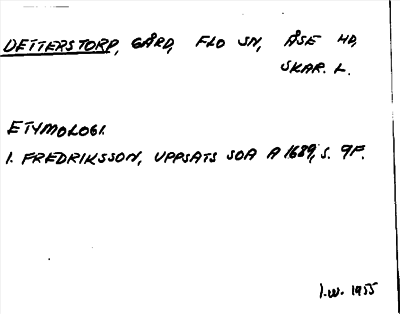 DETTERSTORP, GÅRD, FLO SN, ÅSE HD,
SKAR. L.
ETYMOLOGI.
I. FREDRIKSSON, UPPSATS SOA A 1689, S. 9F.
I.W. 1955